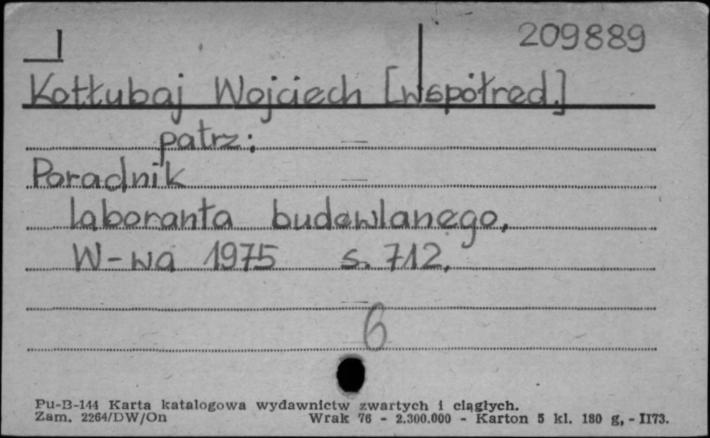 209889
Kotłubaj Wojciech [współred.]
patrz:
Poradnik
laboranta budowlanego,
W-wa 1975 s. 712.
6
Pu-B-144 Karta katalogowa wydawnictw zwartych i ciągłych.
Zam. 2264/DW/On Wrak 76 - 2.300.000 - Karton 5 kl. 180 g, - II73.